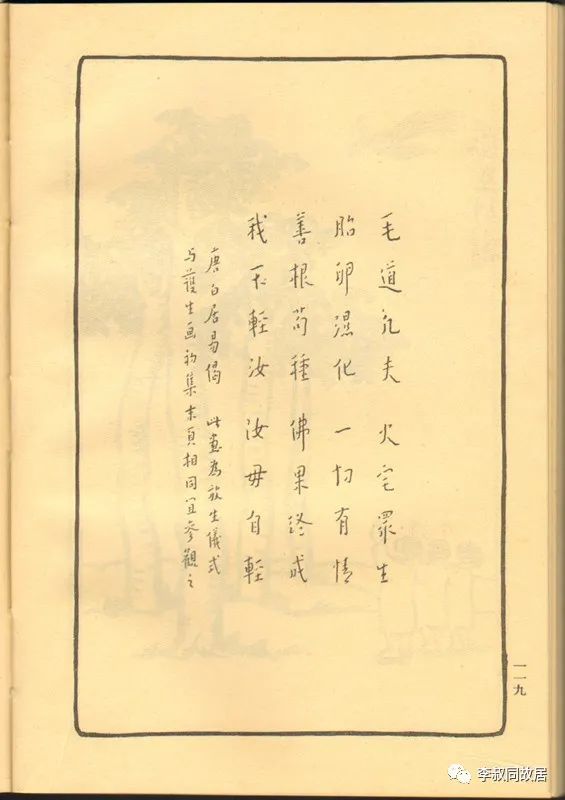 毛道凡夫　火宅眾生
胎卵濕化　一切有情
善根苟種　佛果終成
我不輕汝　汝毋自輕
唐白居易偈　此畫為放生儀式
与護生画初集末頁相同宜參觀之
一一九
李叔同故居